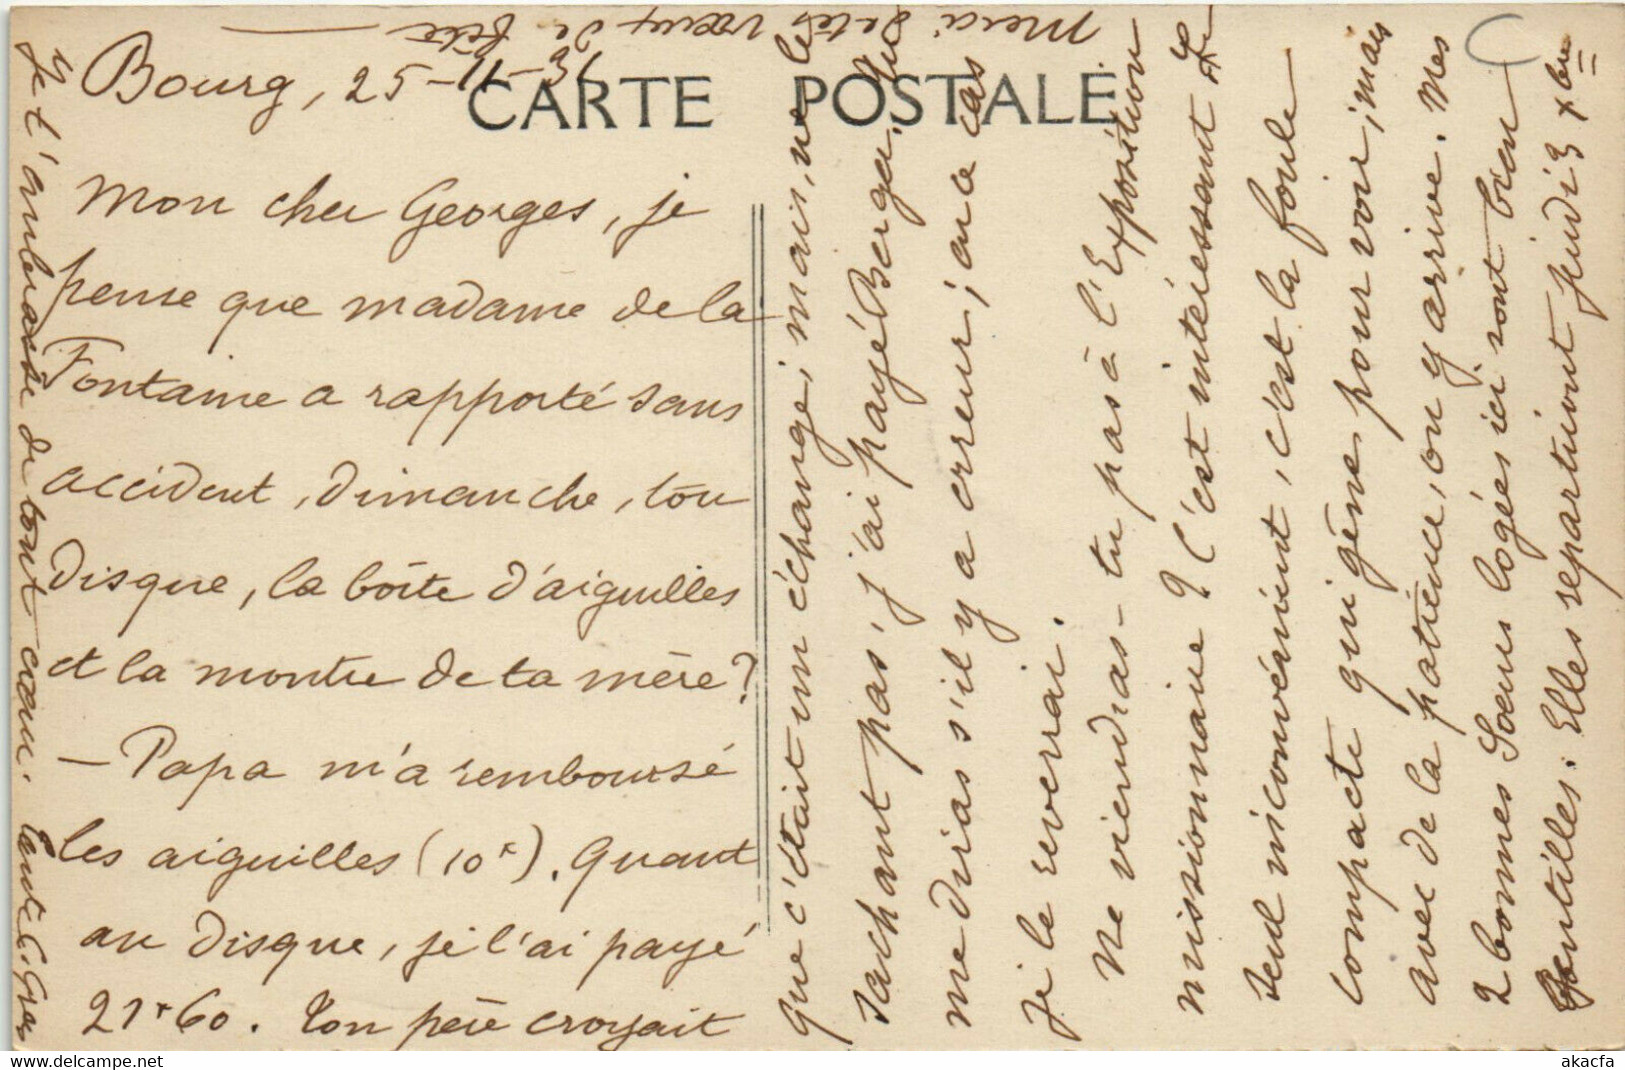 Bourg, 25-11-31
CARTE POSTALE
Mon cher Georges, je
pense que madame de la
Fontaine a rapporté sans
accident, dimanche, ton
disque, la boîte d'aiguilles
et la montre de ta mère?
— Papa m'a remboursé
les aiguilles (10f). Quant
au disque, je l'ai payé
21f60. Ton père croyait
que c'était un échange; mais, ne le
sachant pas, j'ai payé Berger. Tu
me diras s'il y a erreur; en ce cas
je le reverrai.
Ne viendras-tu pas à l'Exposition
missionnaire? C'est intéressant. Le
seul inconvénient, c'est la foule
compacte qui gêne pour voir; mais
avec de la patience, on y arrive. Mes
2 bonnes Soeurs logées ici sont bien
gentilles. Elles repartiront jeudi 3 Xbre
Je t'embrasse de tout coeur.
Merci de tes voeux de fête —
akacfa.com